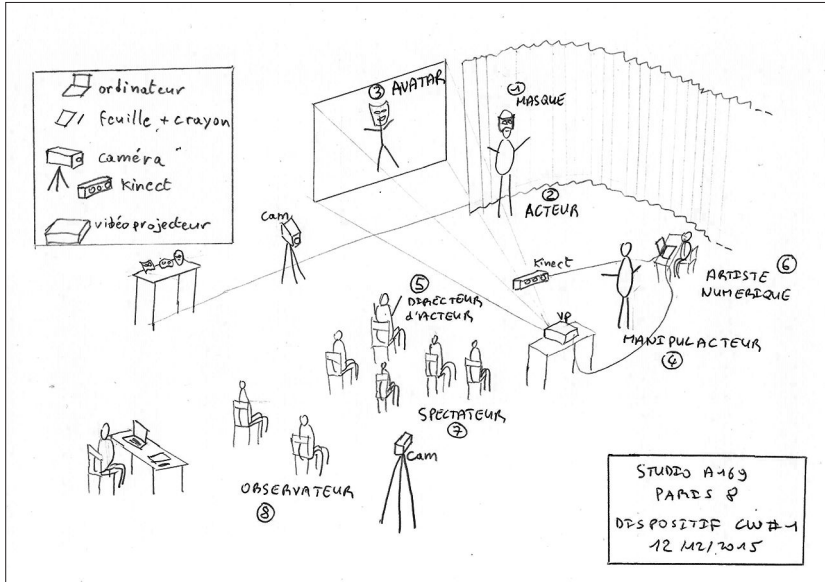 ordinateur
feuille + crayon
caméra
kinect
vidéoprojecteur
③ AVATAR
① MASQUE
② ACTEUR
cam
kinect
⑥
ARTISTE
NUMERIQUE
⑤
DIRECTEUR
d'ACTEUR
VP
MANIPULACTEUR
④
SPECTATEUR
⑦
cam
OBSERVATEUR
⑧
STUDIO A169
PARIS 8
DISPOSITIF CW#1
12/12/2015